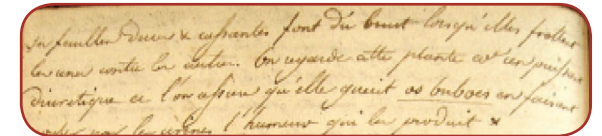 ses feuilles dures & cassantes font du bruit lorsqu'elles frottent
les unes contre les autres. On regarde cette plante comme un puissant
diuretique et l'on assure qu'elle guerit os buboes en faisant
par les urines l'humeur qui les produit &